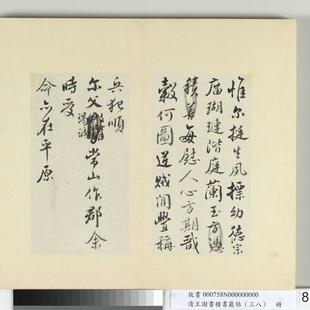 惟尔挺生夙標幼德宗
庙瑚璉階庭蘭玉方憑
積善每慰人心方期戩
穀何圖逆賊閒舋稱
兵犯順
尔父竭誠常山作郡余
時受
命亦在平原
故書 000758N000000000
清王澍書積書巖帖（三八） 冊
8